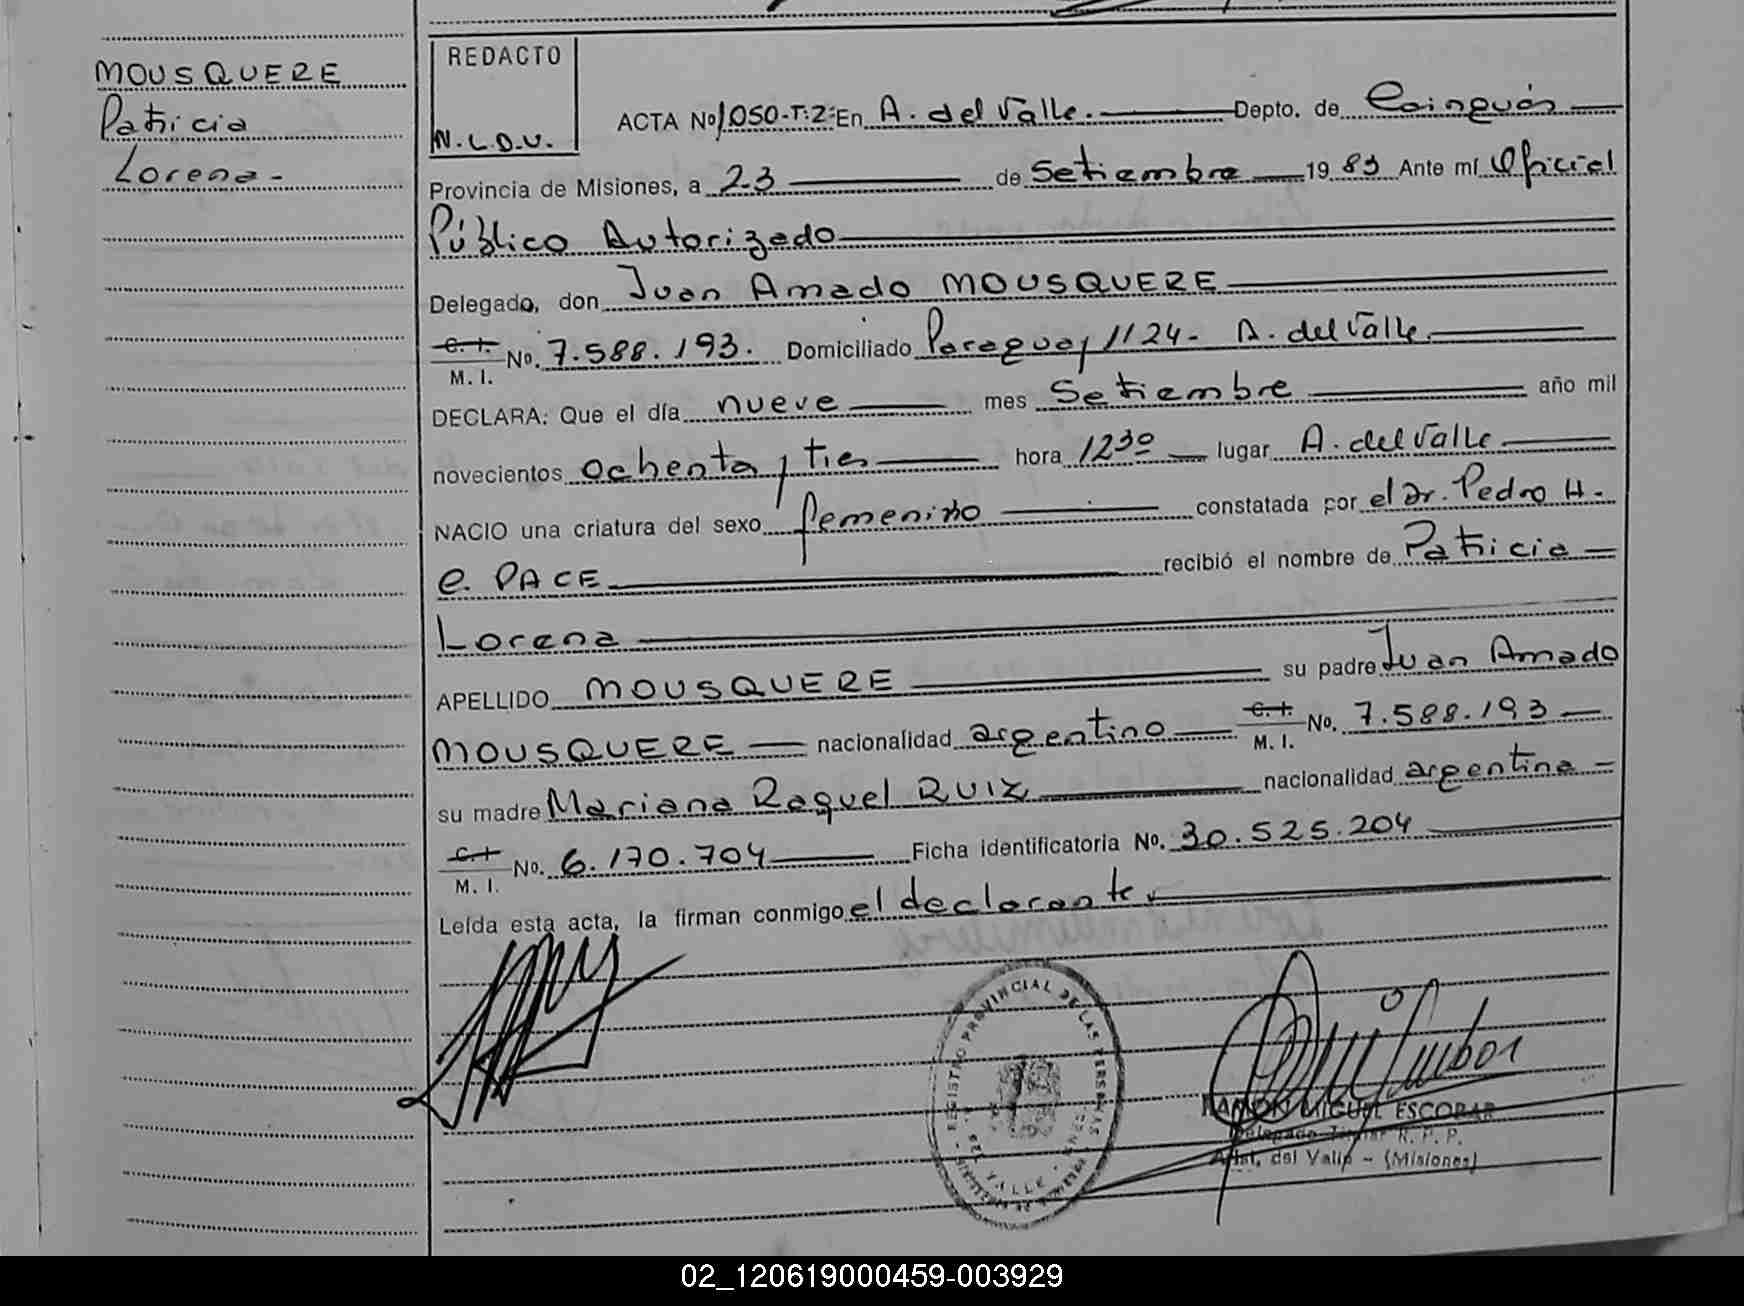 MOUSQUERE
Patricia
Lorena-
REDACTO
N.L.D.V.
ACTA No 1050-T:2: En A. del Valle. Depto. de Cainguás
Provincia de Misiones, a 23 de Setiembre 1983 Ante mí Oficial
Público Autorizado
Delegado, don Juan Amado MOUSQUERE
C. I. M. I. No. 7.588.193. Domiciliado Paraguay 1124- A. del Valle.
DECLARA: Que el día nueve mes Setiembre año mil
novecientos ochenta y tres hora 1230 lugar A. del Valle
NACIO una criatura del sexo femenino constatada por el Dr. Pedro H.
C. PACE recibió el nombre de Patricia
Lorena
APELLIDO MOUSQUERE su padre Juan Amado
MOUSQUERE nacionalidad argentino C. I. M. I. No. 7.588.193
su madre Mariana Raquel RUIZ nacionalidad argentina
C. I. M. I. No. 6.170.704 Ficha identificatoria No. 30.525.204
Leída esta acta, la firman conmigo el declarante
REGISTRO PROVINCIAL DE LAS PERSONAS
VALLE
RAMON MIGUEL ESCOBAR
Delegado Titular R. P. P.
Arist. del Valle - (Misiones)
02_120619000459-003929